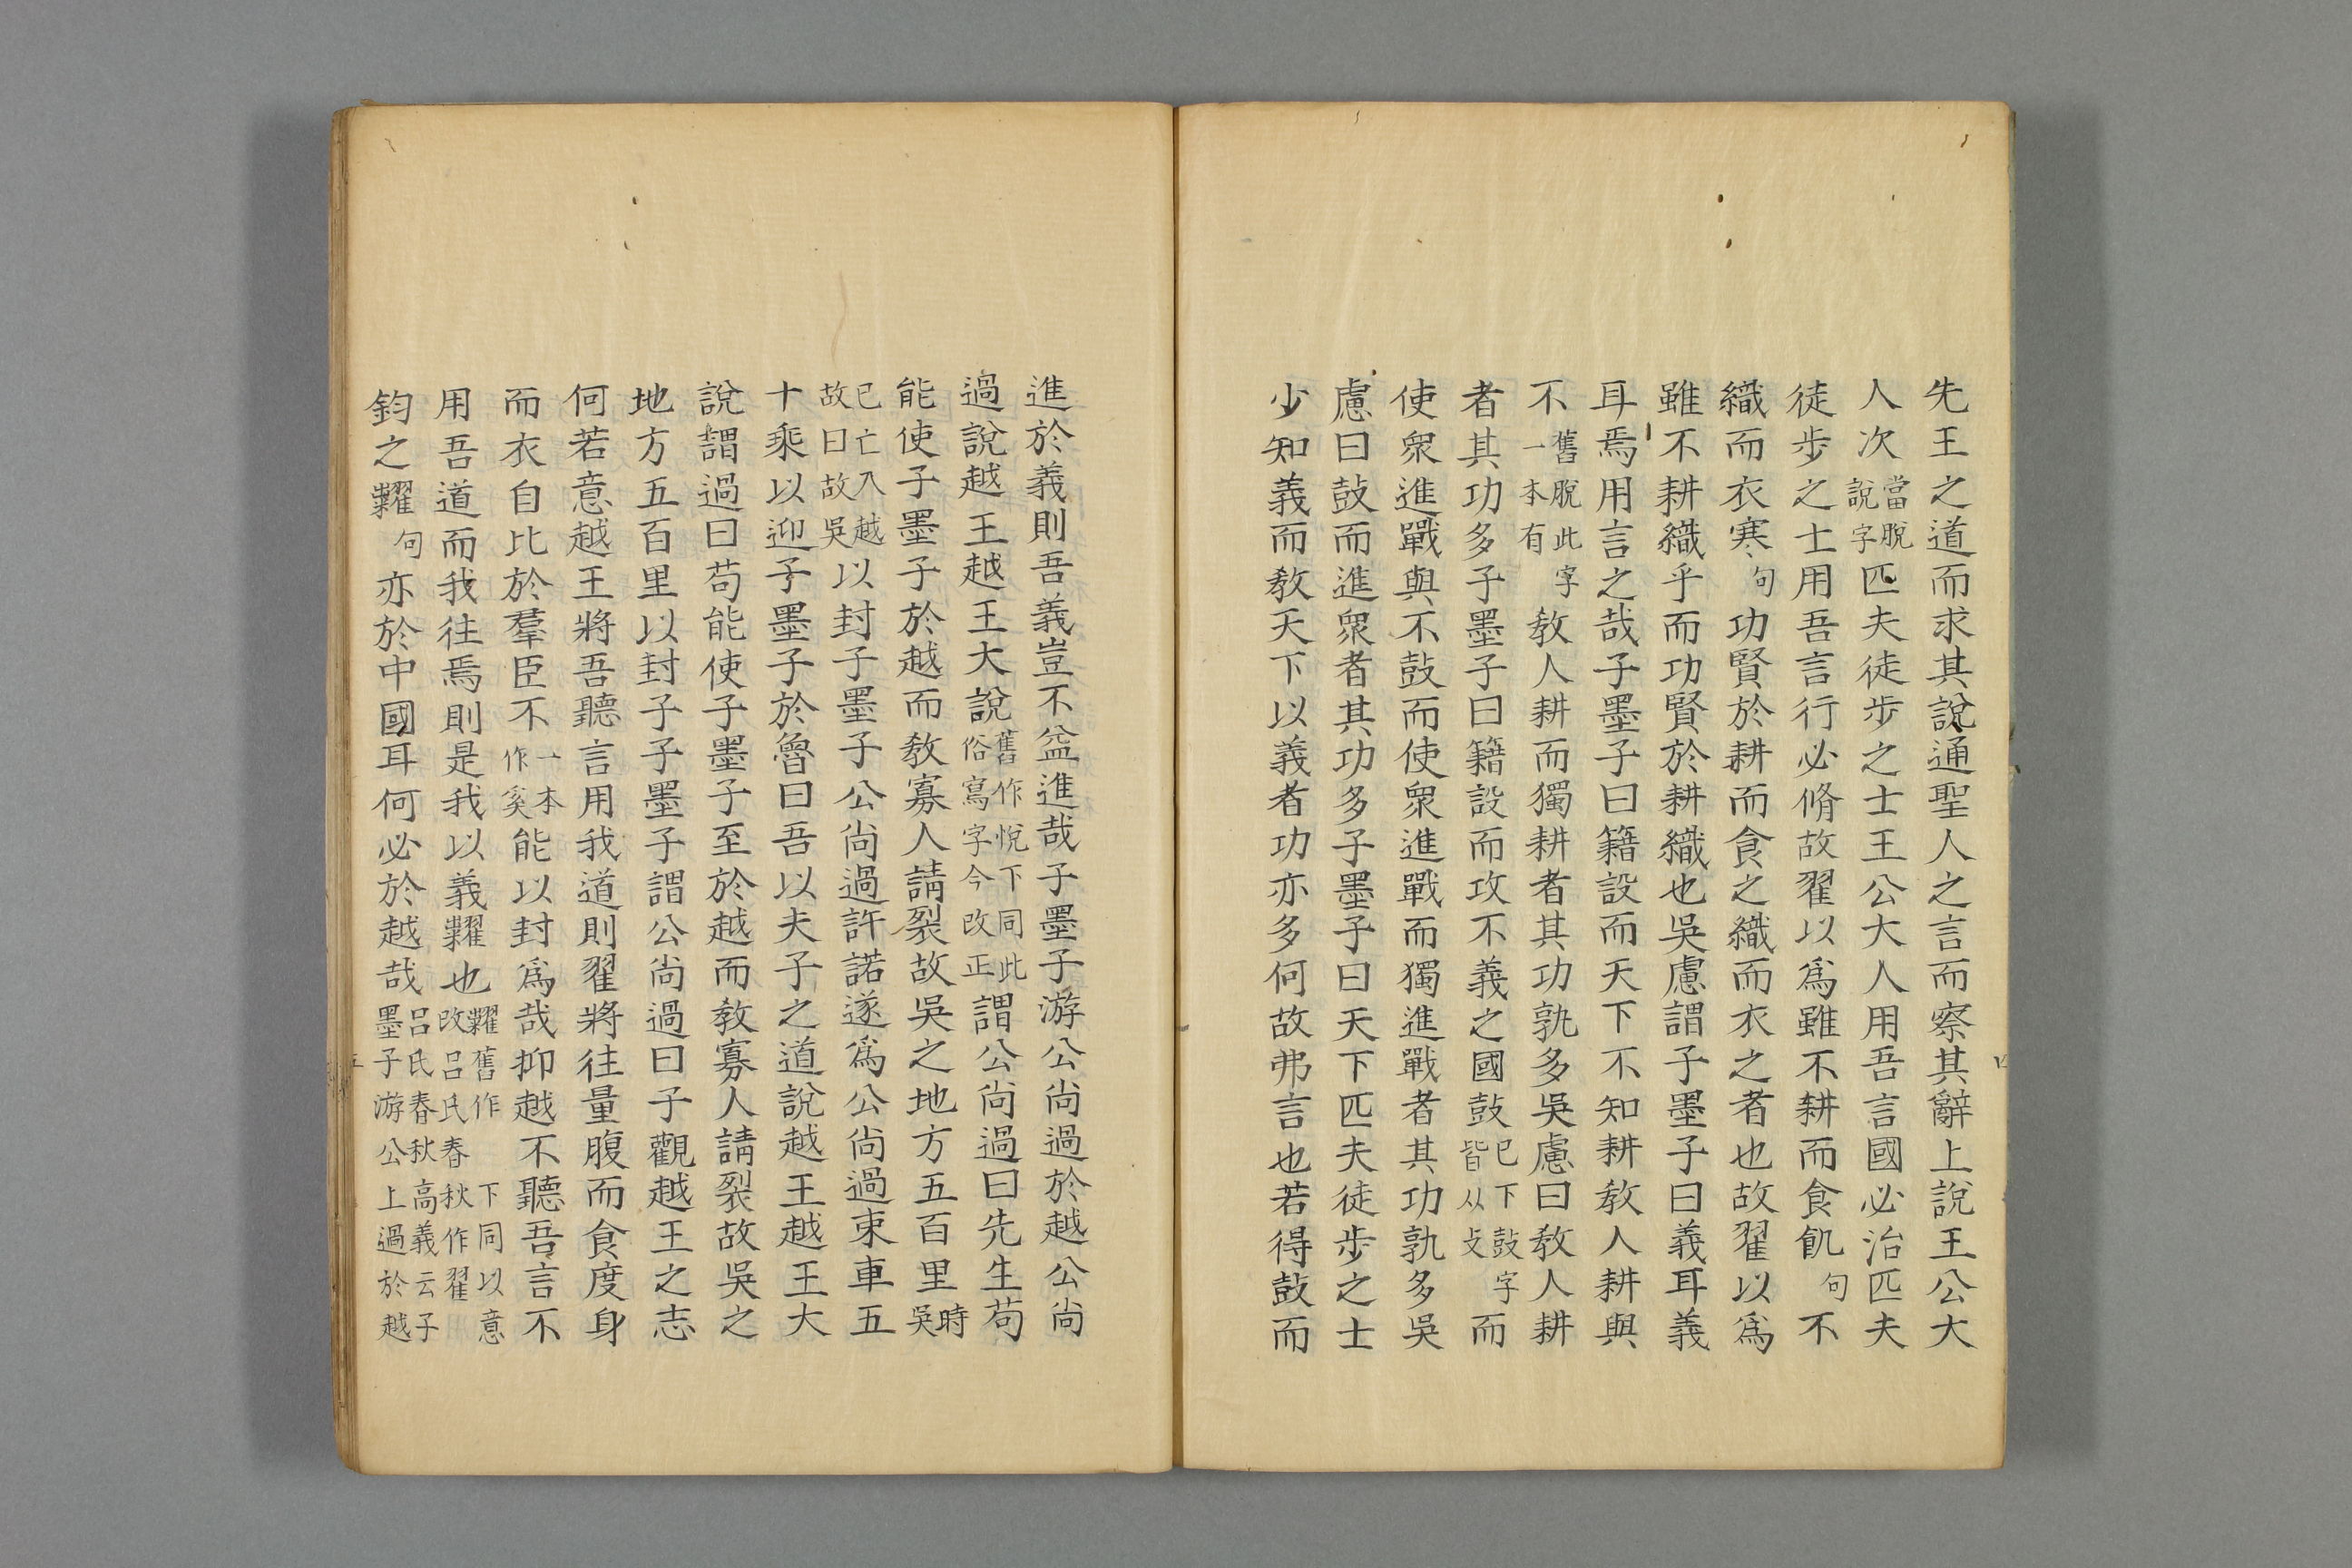 先王之道而求其說通聖人之言而察其辭上說王公大
人次當脫說字匹夫徒步之士王公大人用吾言國必治匹夫
徒步之士用吾言行必脩故翟以爲雖不耕而食飢句不
織而衣寒句功賢於耕而食之織而衣之者也故翟以爲
雖不耕織乎而功賢於耕織也吳慮謂子墨子曰義耳義
耳焉用言之哉子墨子曰籍設而天下不知耕教人耕與
不舊脫此字一本有教人耕而獨耕者其功孰多吳慮曰教人耕
者其功多子墨子曰籍設而攻不義之國鼓已下鼓字皆从攴而
使衆進戰與不鼓而使衆進戰而獨進戰者其功孰多吳
慮曰鼓而進衆者其功多子墨子曰天下匹夫徒步之士
少知義而教天下以義者功亦多何故弗言也若得鼓而
進於義則吾義豈不益進哉子墨子游公尚過於越公尚
過說越王越王大說舊作悅下同此俗寫字今改正謂公尚過曰先生苟
能使子墨子於越而教寡人請裂故吳之地方五百里時吳
已亡入越故曰故吳以封子墨子公尚過許諾遂爲公尚過束車五
十乘以迎子墨子於魯曰吾以夫子之道說越王越王大
說謂過曰苟能使子墨子至於越而教寡人請裂故吳之
地方五百里以封子子墨子謂公尚過曰子觀越王之志
何若意越王將吾聽言用我道則翟將往量腹而食度身
而衣自比於羣臣不一本作奚能以封爲哉抑越不聽吾言不
用吾道而我往焉則是我以義糶也糶舊作 下同以意改呂氏春秋作翟
鈞之糶句亦於中國耳何必於越哉呂氏春秋高義云子墨子游公上過於越